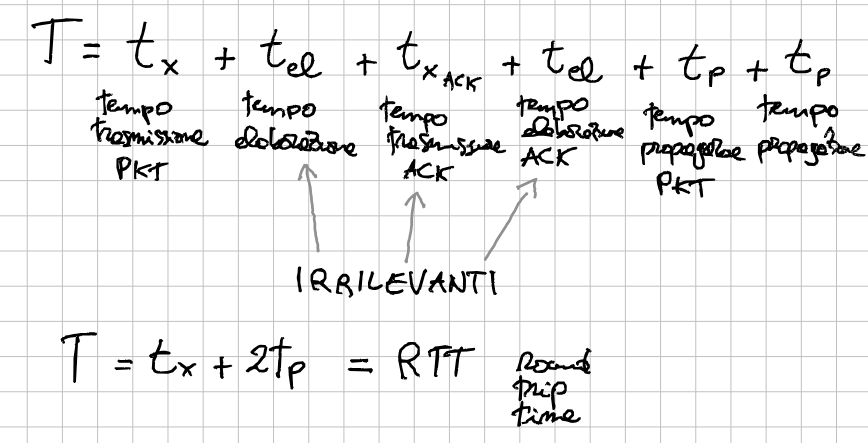 T = tx + tel + txACK + tel + tp + tp
tempo trasmissione PKT
tempo elaborazione
tempo trasmissione ACK
tempo elaborazione ACK
tempo propagazione PKT
tempo propagazione
IRRILEVANTI
T = tx + 2tp = RTT
round
trip
time